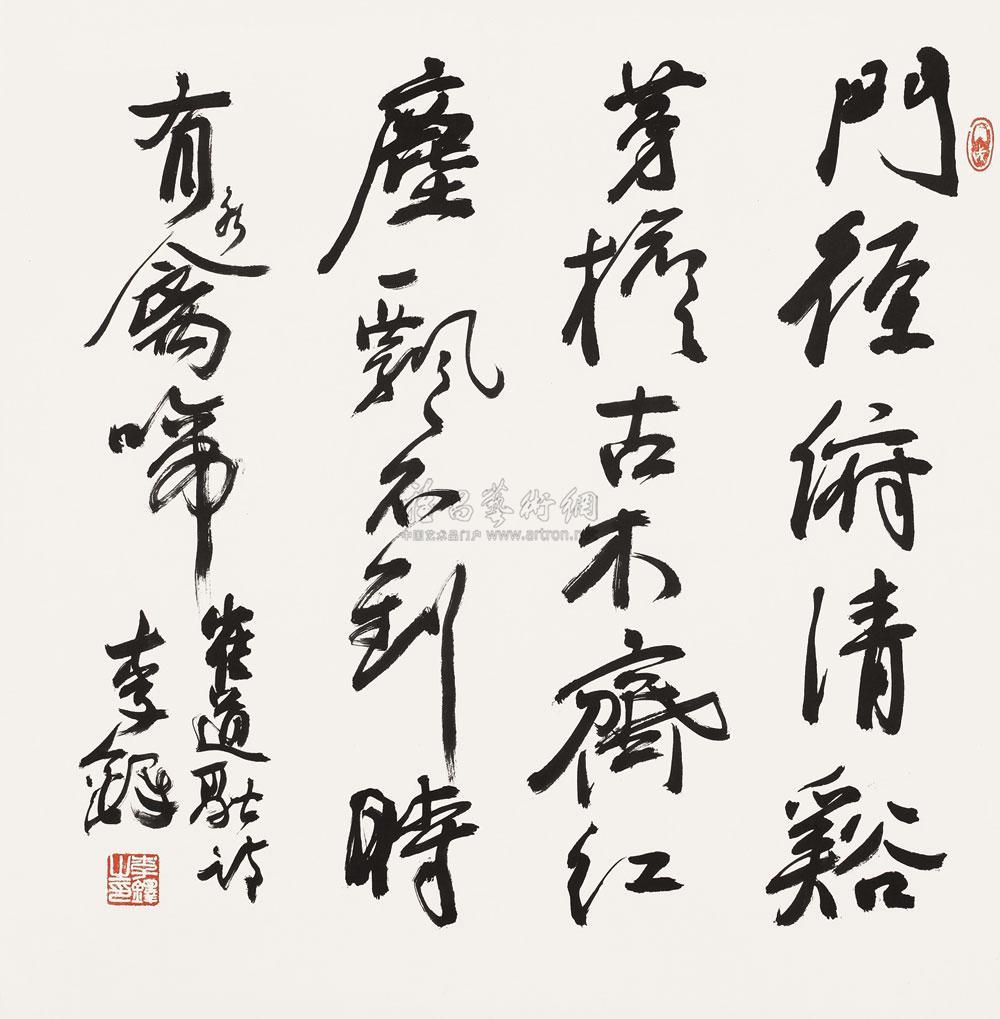 門徑俯清谿
茅檐古木齊紅
塵飄不到時
有水禽啼
崔道融詩
李鐸
李鐸之印
雅昌藝術網
中国艺术品门户 www.artron.net